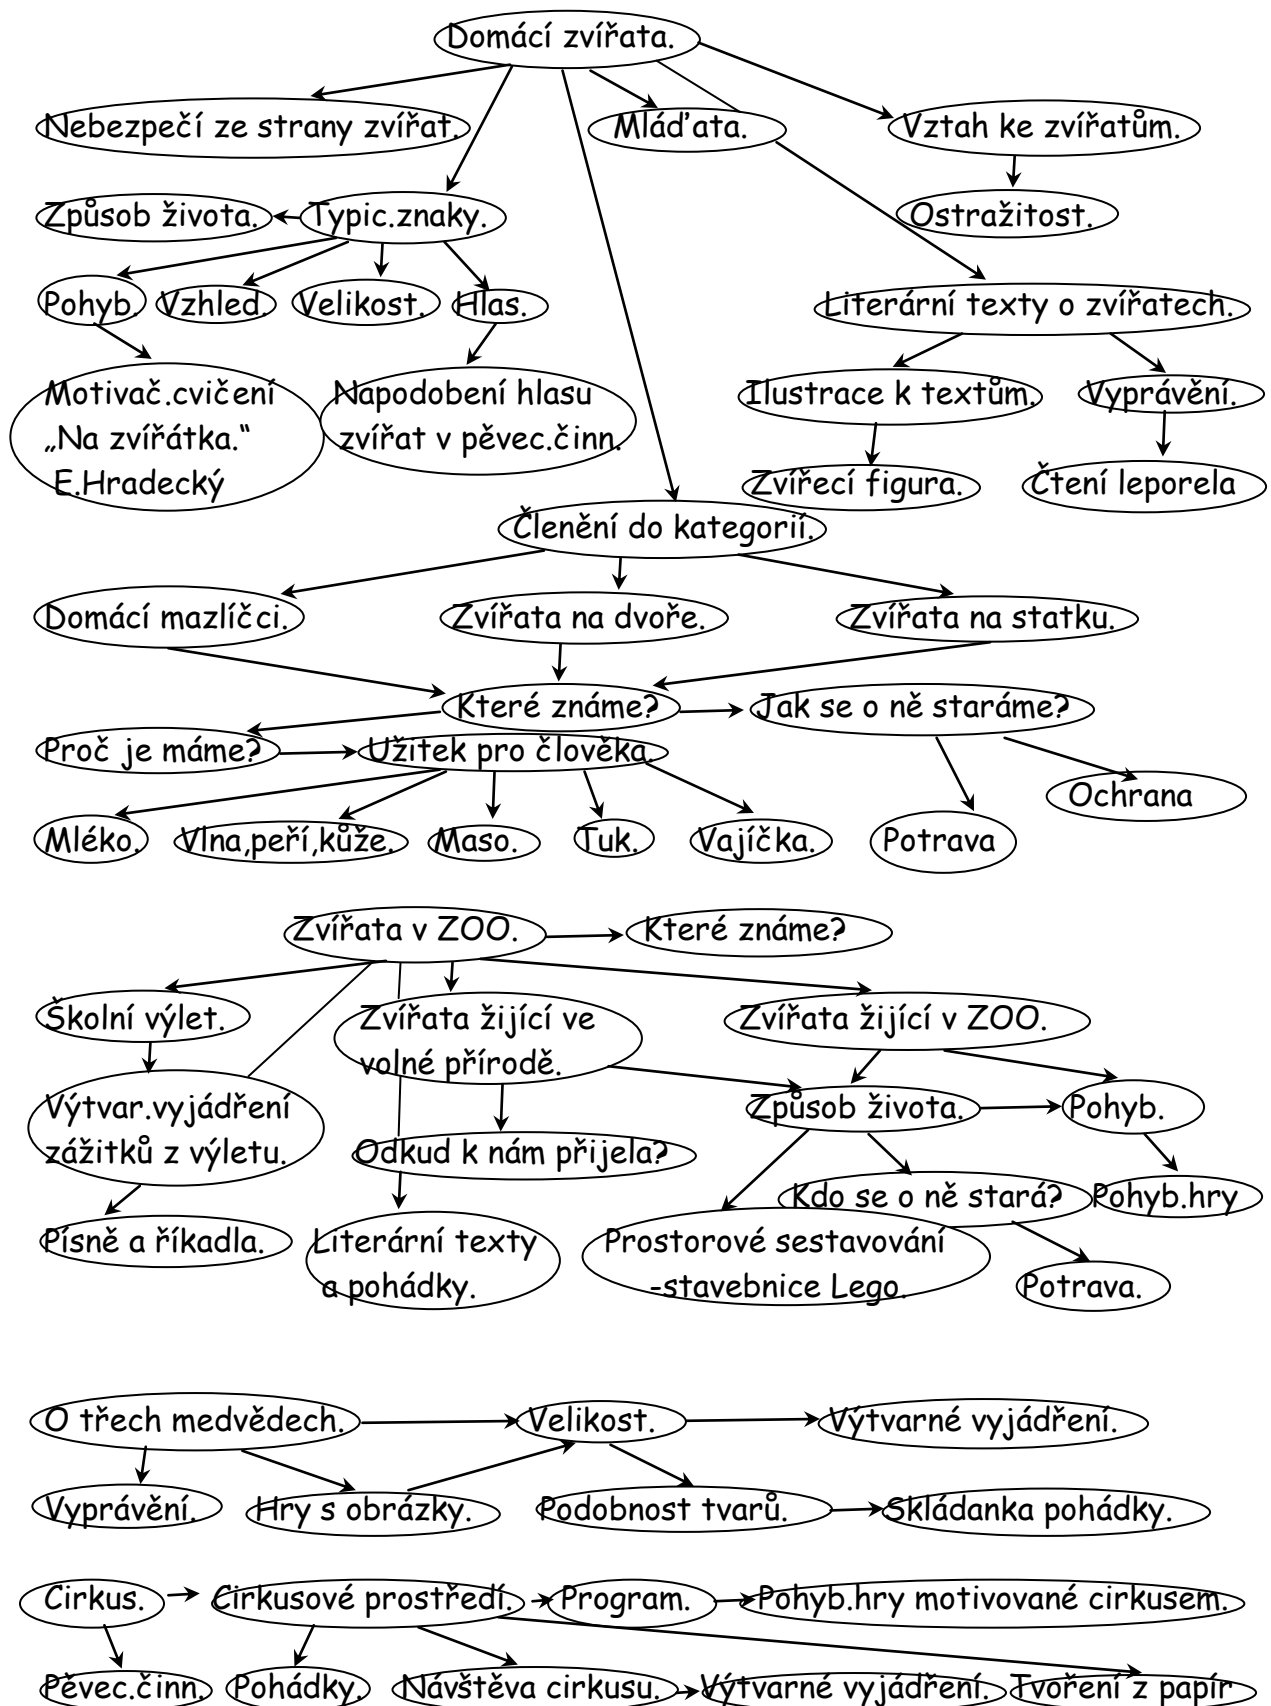 Domácí zvířata.
Nebezpečí ze strany zvířat. Mláďata. Vztah ke zvířatům.
Způsob života. Typic.znaky. Ostražitost.
Pohyb. Vzhled. Velikost. Hlas. Literární texty o zvířatech.
Motivač.cvičení Napodobení hlasu Ilustrace k textům. Vyprávění.
„Na zvířátka.“ zvířat v pěvec.činn.
E.Hradecký Zvířecí figura. Čtení leporela
Členění do kategorií.
Domácí mazlíčci. Zvířata na dvoře. Zvířata na statku.
Které známe? Jak se o ně staráme?
Proč je máme? Užitek pro člověka.
Ochrana
Mléko. Vlna,peří,kůže. Maso. Tuk. Vajíčka. Potrava
Zvířata v ZOO. Které známe?
Školní výlet. Zvířata žijící ve Zvířata žijící v ZOO.
volné přírodě.
Výtvar.vyjádření Způsob života. Pohyb.
zážitků z výletu. Odkud k nám přijela?
Kdo se o ně stará? Pohyb.hry
Písně a říkadla. Literární texty Prostorové sestavování
a pohádky. -stavebnice Lego. Potrava.
O třech medvědech. Velikost. Výtvarné vyjádření.
Vyprávění. Hry s obrázky. Podobnost tvarů. Skládanka pohádky.
Cirkus. Cirkusové prostředí. Program. Pohyb.hry motivované cirkusem.
Pěvec.činn. Pohádky. Návštěva cirkusu. Výtvarné vyjádření. Tvoření z papír